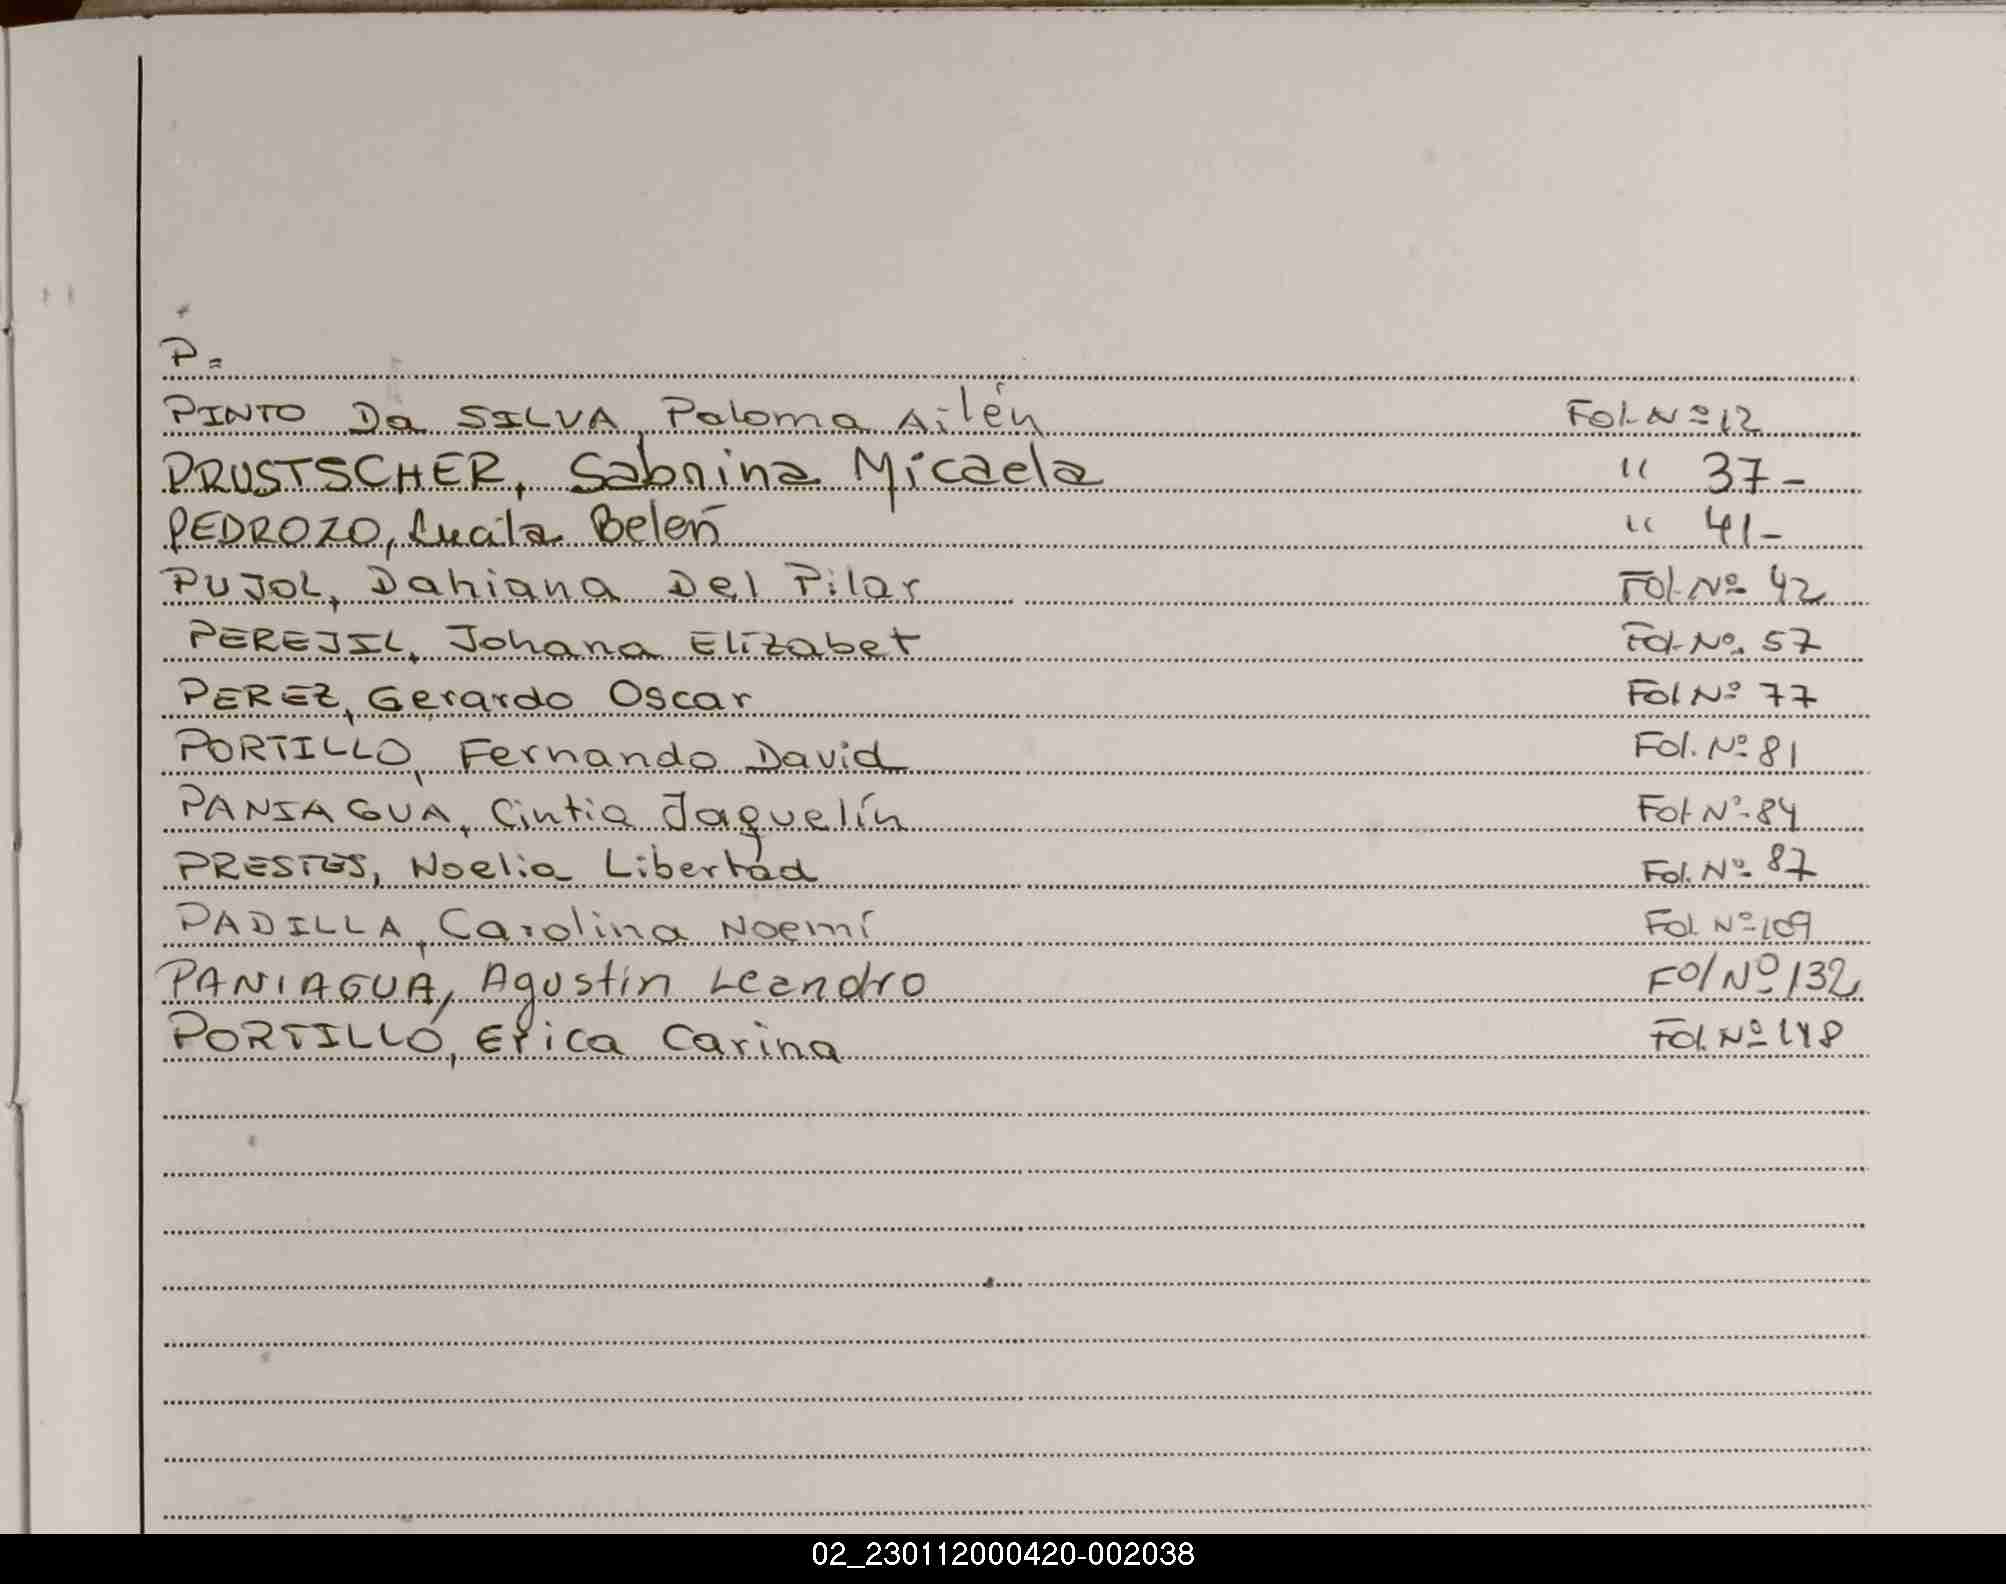 P=
PINTO Da SILVA, Paloma Ailén Fol. Nº 12
PRUSTSCHER, Sabrina Micaela " 37-
PEDROZO, Lucila Belén " 41-
PUJOL, Dahiana Del Pilar Fol. Nº 42
PEREJIL, Johana Elizabet Fol. Nº 57
PEREZ, Gerardo Oscar Fol Nº 77
PORTILLO, Fernando David Fol. Nº 81
PANIAGUA, Cintia Jaquelín Fol. Nº 84
PRESTES, Noelia Libertad Fol. Nº 87
PADILLA, Carolina Noemí Fol. Nº 109
PANIAGUA, Agustín Leandro Fol Nº 132
PORTILLO, Erica Carina Fol. Nº 148
02_230112000420-002038